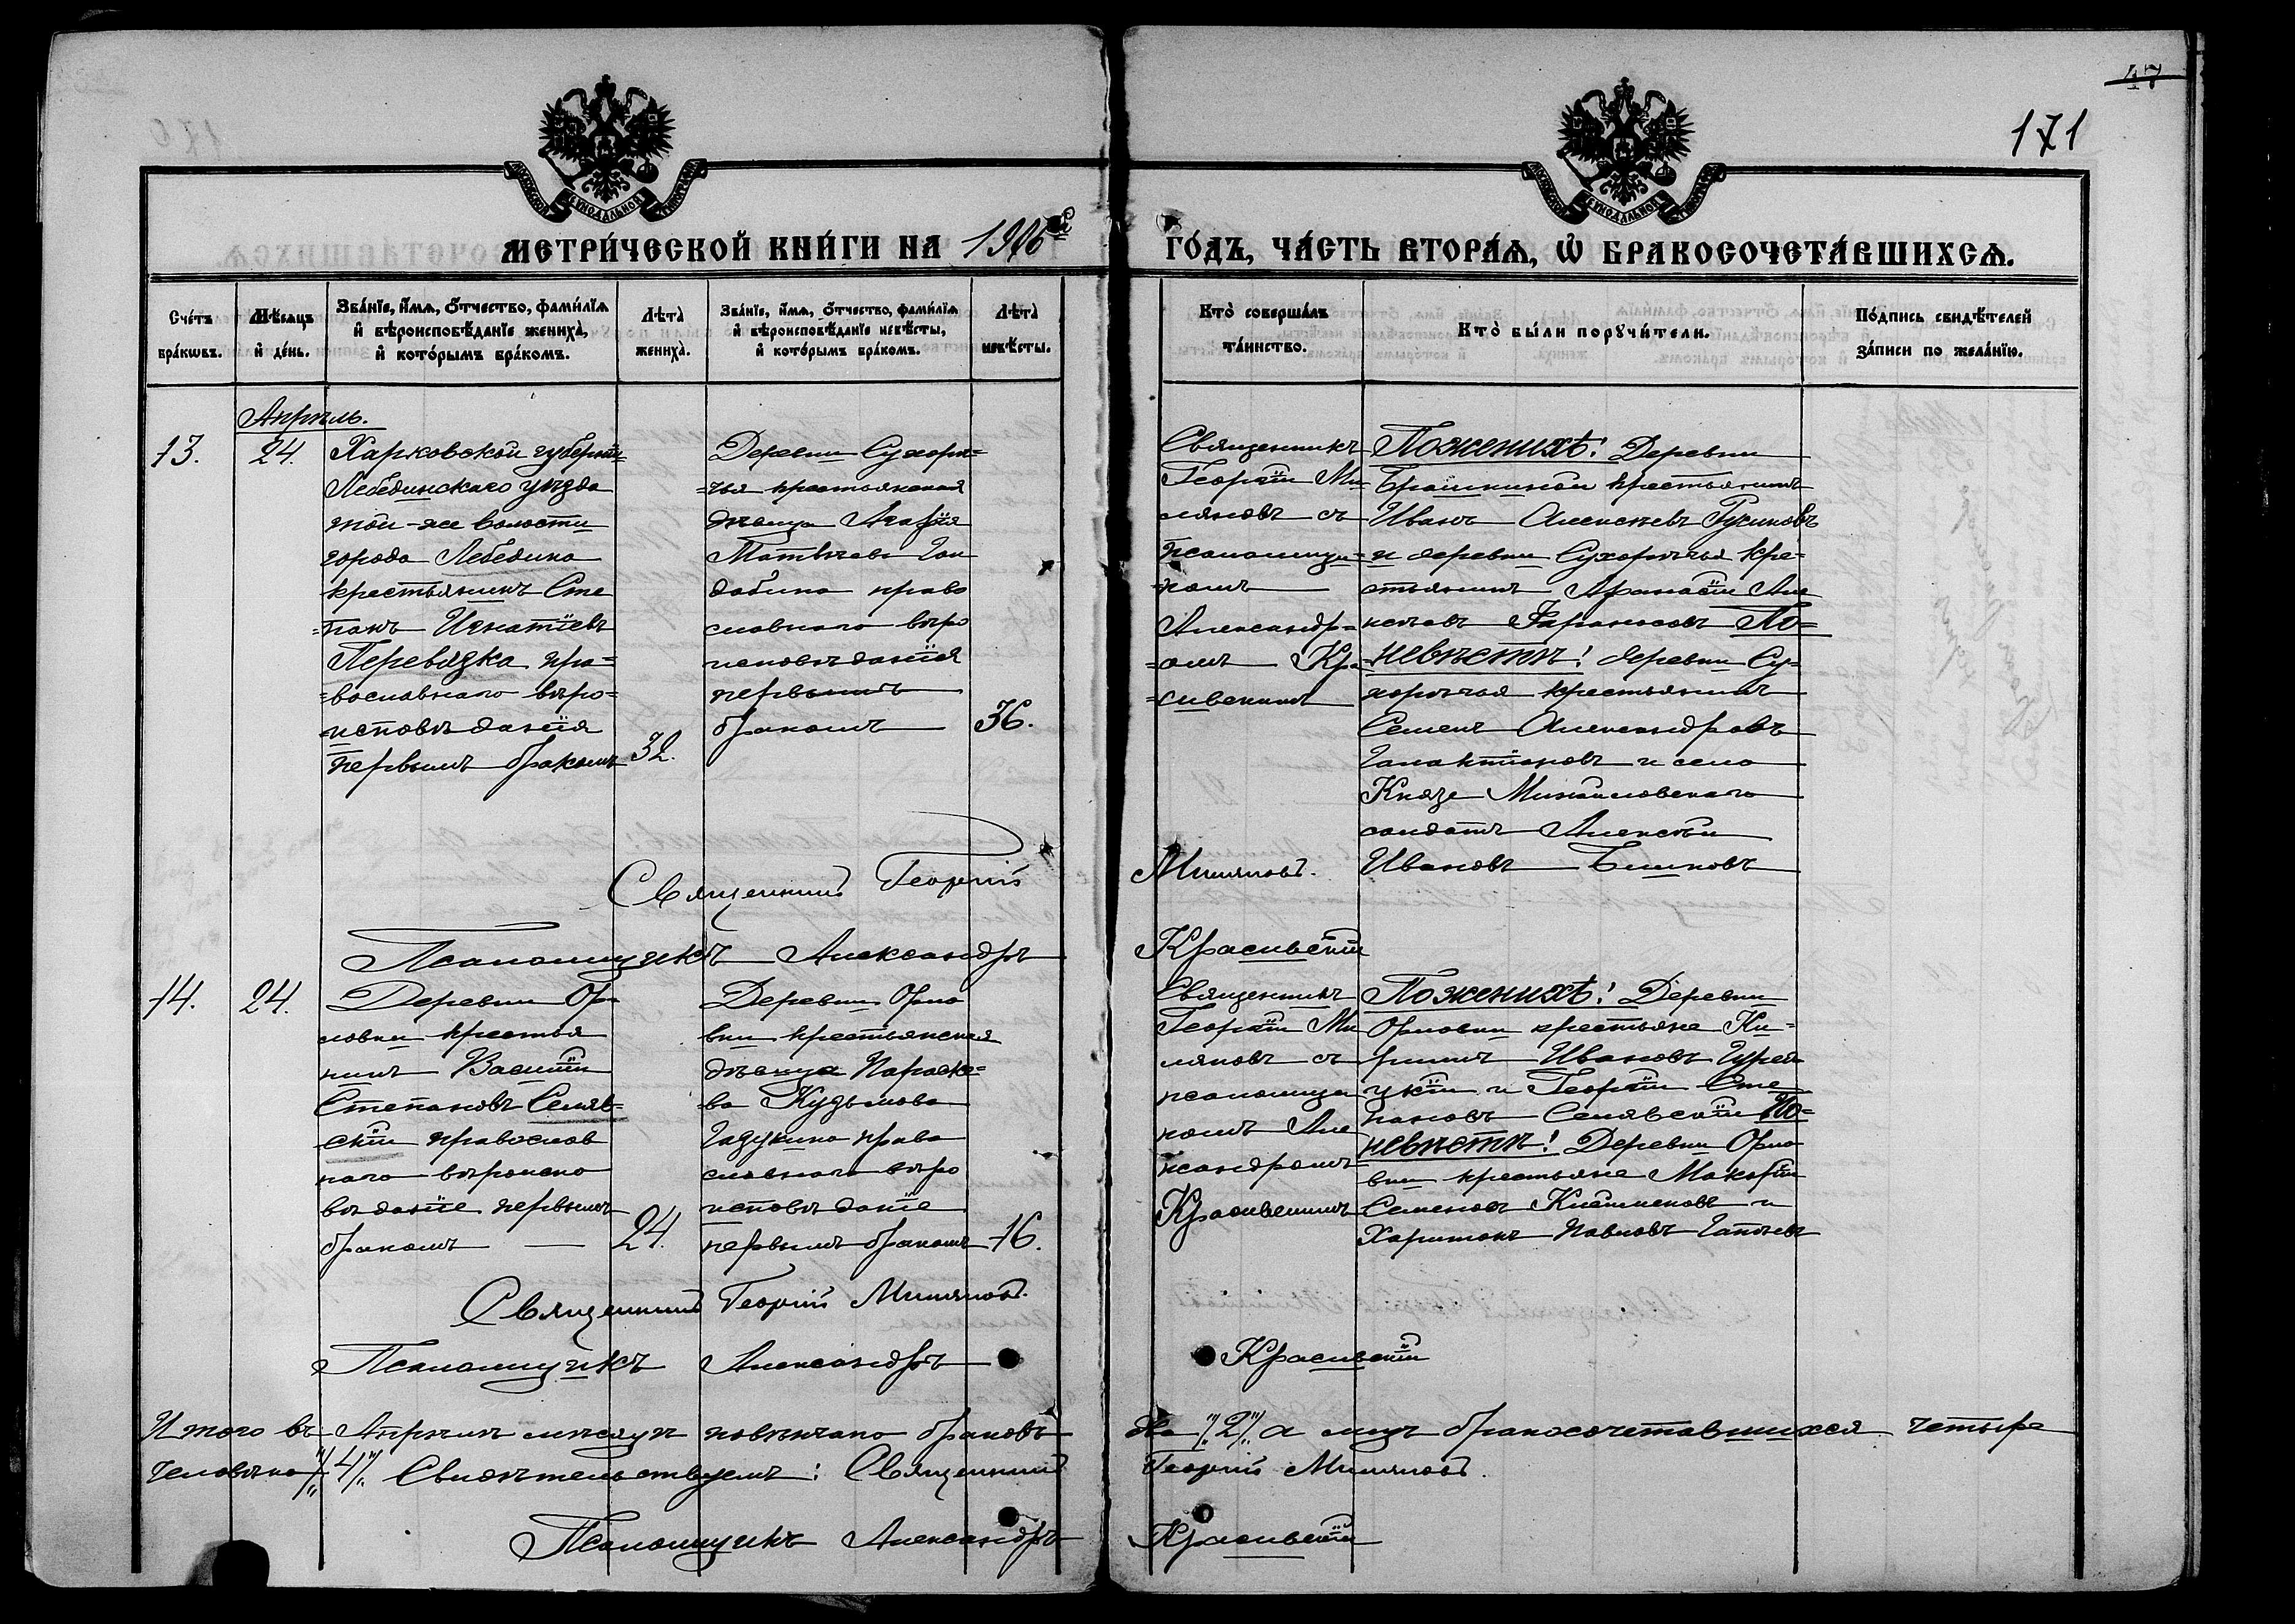 171
МЕТРИ́ЧЕСКОЙ КНИ́ГИ НА 1906й
ГО́ДЪ, ЧА́СТЬ ВТОРА́Ѧ, Ѽ БРАКОСОЧЕТА́ВШИХСѦ.
Сче́тъ бра́кѡвъ.
Мѣ́сѧцъ и҆ де́нь.
Зва́нїе, и҆́мѧ, ѻ҆́тчество, фами́лїѧ и҆ вѣроисповѣ́данїе жениха̀, и҆ кото́рымъ бра́комъ.
Лѣта̀ жениха̀.
Зва́нїе, и҆́мѧ, ѻ҆́тчество, фами́лїѧ и҆ вѣроисповѣ́данїе невѣ́сты, и҆ кото́рымъ бра́комъ.
Лѣта̀ невѣ́сты.
Кто̀ соверша́лъ та́инство.
Кто̀ бы́ли порꙋчи́тели.
По́дпись свидѣ́телей за́писи по жела́нїю.
Апрѣль.
13.
24.
Харковской губерніи
Лебединскаго уѣзда
той-же волости
города Лебедина
крестьянинъ Сте
=панъ Игнатіевъ
Перевязка пра=
=вославнаго вѣро=
=исповѣданія
первымъ бракомъ
32.
Деревни Сухорѣ=
=чья крестьянская
дѣвица Агафія
Матвѣева
право
славнаго вѣро
исповѣданія
первымъ
бракомъ
36.
Священникъ
Георгій Ми=
ляновъ съ
псаломщи=
=комъ
Александр=
=омъ Кра=
=сивскимъ
Поженихѣ: Деревни
крестьянинъ
Иванъ Алексѣевъ Русиновъ
и деревни Сухорѣчья кре=
стьянинъ Афанасій Але
ксѣевъ По=
невѣстѣ: деревни Су=
хорѣчья крестьянинъ
Семенъ Александровъ
Галактіоновъ и села
Князе Михайловскаго
солдатъ Алексѣй
Ивановъ
Священникъ Георгій
Миляновъ.
Псаломщикъ Александръ
Красивскій
14.
24.
Деревни Ор=
ловки крестья
нинъ Василій
Степановъ Селяв=
скій православ
наго вѣроиспо
вѣданіе первымъ
бракомъ
24.
Деревни Орло
вки крестьянская
дѣвица Параске=
ва Кузьмова
права
славнаго вѣро
исповѣданіе
первымъ бракомъ
16.
Священникъ
Георгій Ми
ляновъ съ
псаломщи
комъ Але
ксандромъ
Красивскимъ
Поженихѣ: Деревни
Орловки крестьяне Ки=
рилъ Ивановъ
и Георгій Сте
пановъ Селявскій По=
невѣстѣ: Деревни Орло
вки крестьяне Макарій
Семеновъ и
Харитонъ Павловъ
Священникъ Георгій Миляновъ.
Псаломщикъ Александръ
Красивскій
Итого въ Апрѣлѣ мѣсяцѣ повѣнчано браковъ
два "2" а лицъ бракосочетавшихся четыре
человѣка "4" Свидѣтельствуемъ: Священникъ
Георгій Миляновъ.
Псаломщикъ Александръ
Красивскій